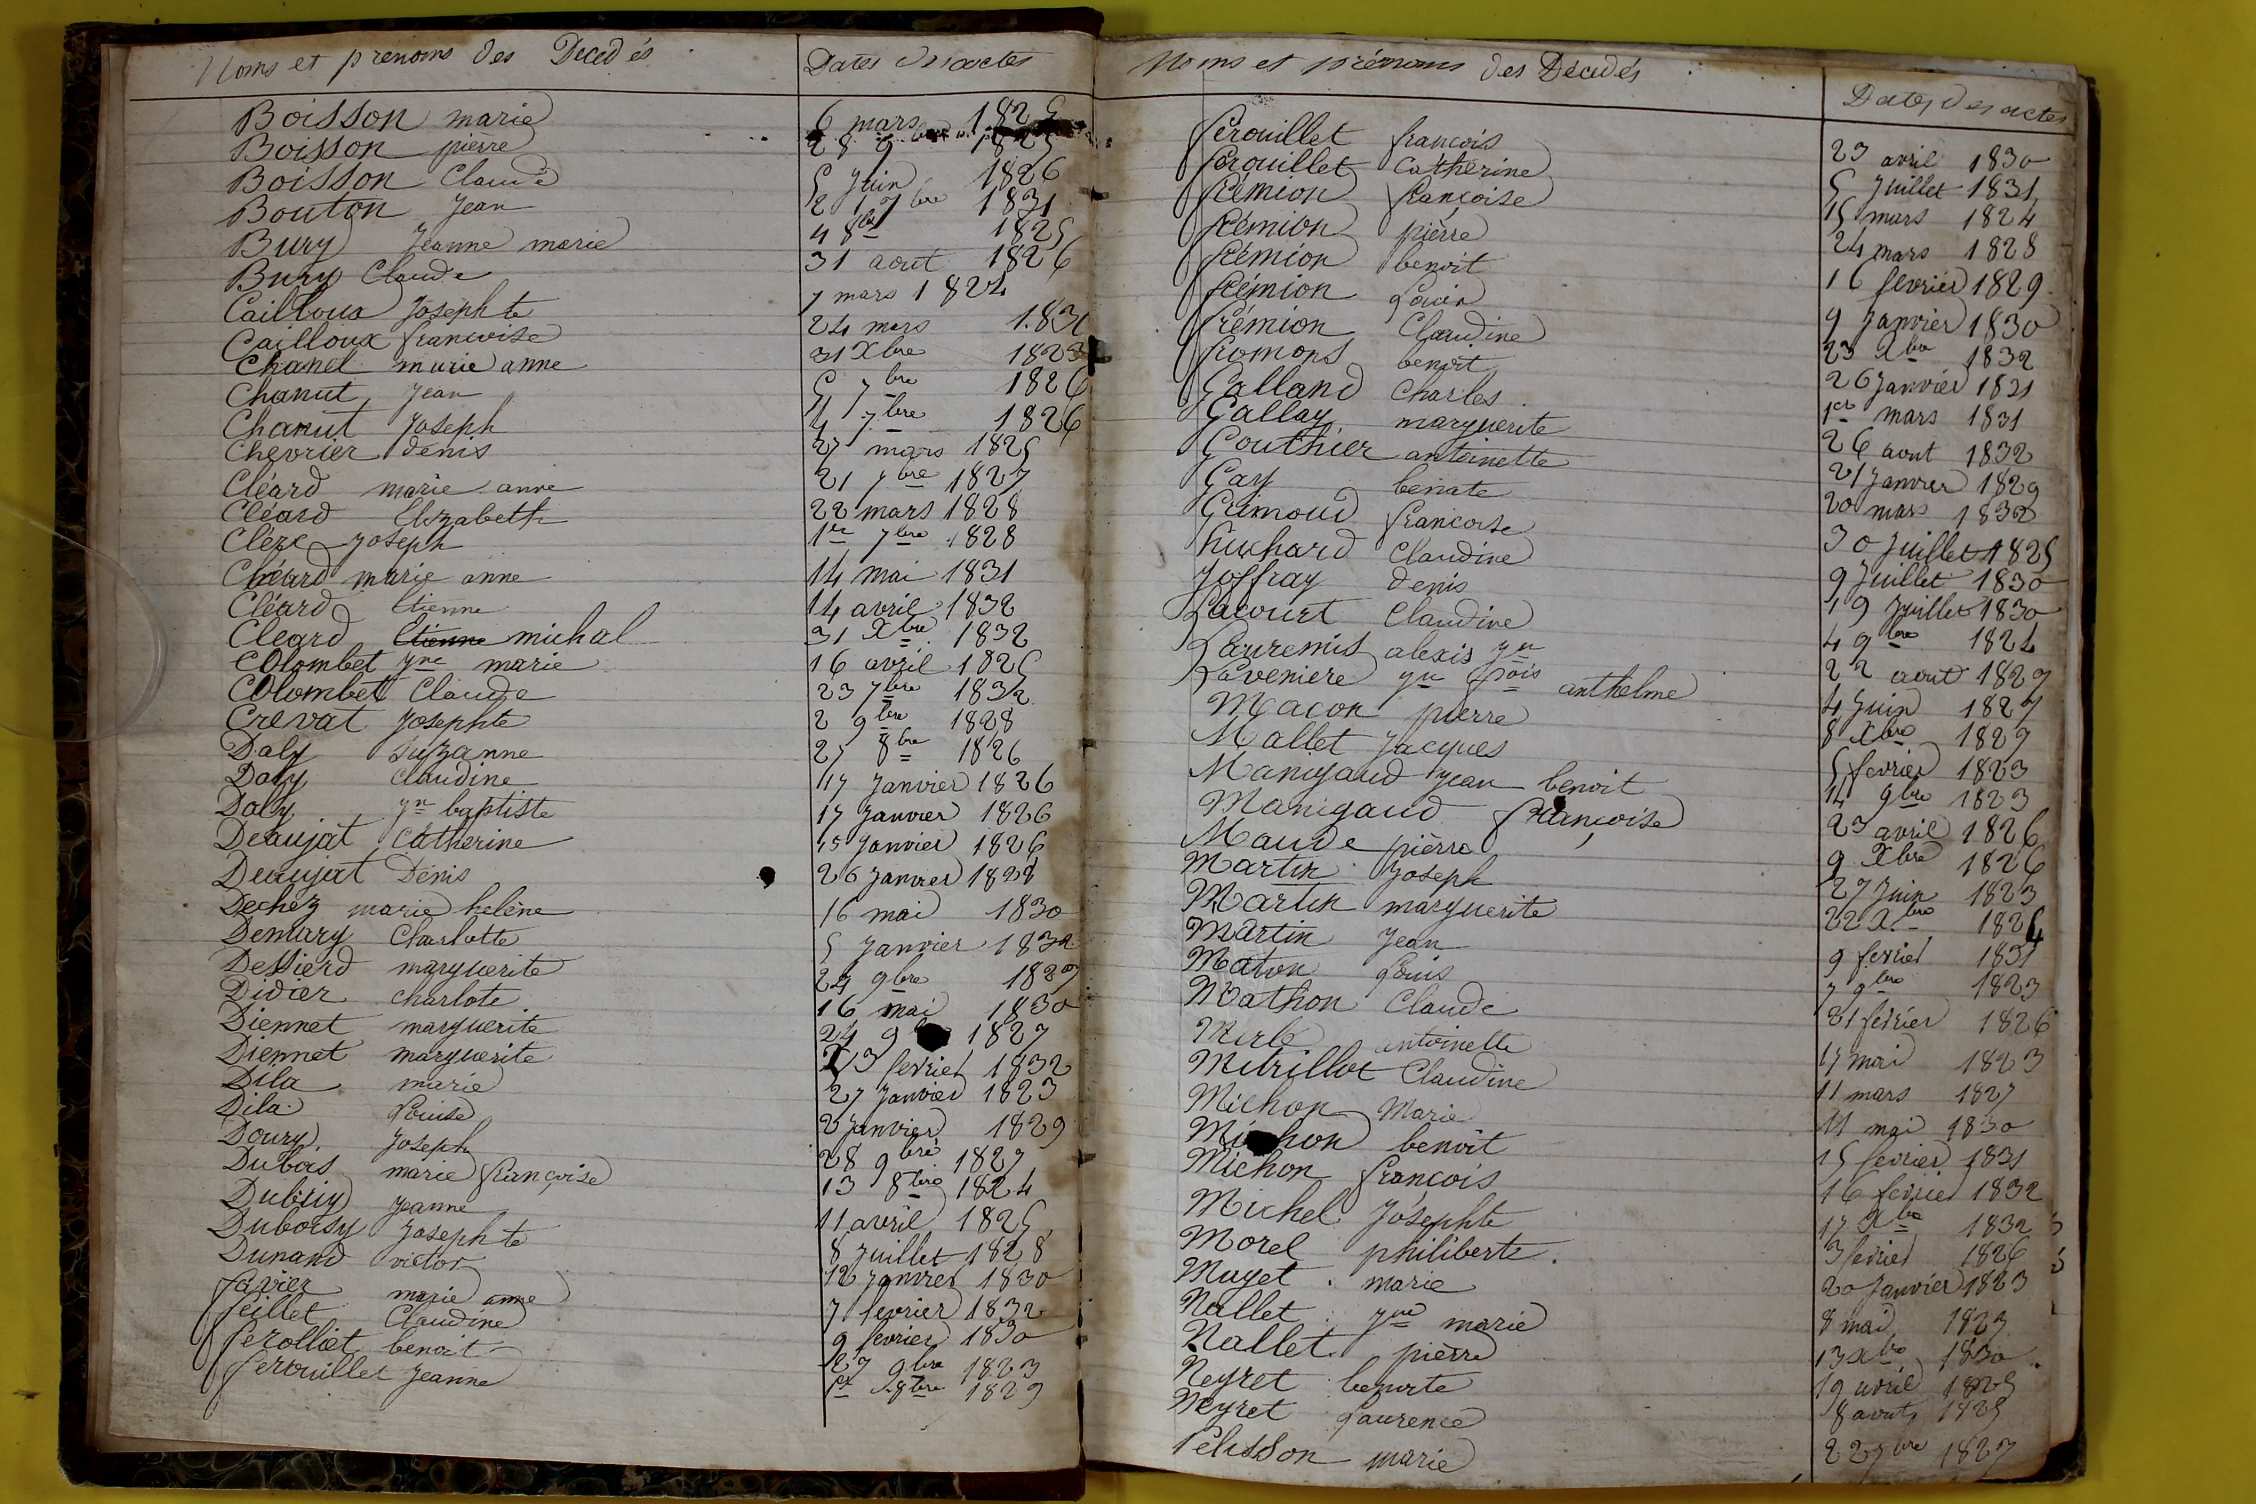 Noms et prenoms des Decedés Dates des actes
Boisson marie 6 mars 1825
Boisson pièrre 28 9bre 1825
Boisson Claude 5 Juin 1826
Bouton Jean 21 7bre 1831
Bury Jeanne marie 4 8bre 1825
Bury Claude 31 aout 1826
Cailloux Josephte 7 mars 1824
Cailloux francoise 24 mars 183
Chanel marie anne 31 Xbre 1823
Chanut Jean 5 7bre 1826
Chanut Joseph 4 7bre 1826
Chevrier denis 27 mars 1825
Cléard marie anne 21 7bre 1827
Cléard Elizabeth 22 mars 1828
Clézc Joseph 1er 7bre 1828
Cléard marie anne 14 mai 1831
Cléard Etienne 14 avril 1832
Cleard Etienne michal 31 Xbre 1832
Colombet Jne marie 16 avril 1826
Colombet Claude 23 7bre 1832
Crevat Josephte 2 9bre 1828
Daly Suzanne 27 8bre 1826
Daly Claudine 17 Janvier 1826
Daly Jn baptiste 17 Janvier 1826
Deaujat Catherine 15 Janvier 1826
Deaujat Dénis 26 Janvier 1828
Dechez marie helène 16 mai 1830
Demary Charlotte 5 Janvier 1832
Dessierd marguerite 24 9bre 1827
Didier charlote 16 mai 1830
Diennet marguerite 24 9 1827
Diennet marguerite 23 fevrier 1832
Dila marie 27 Janvier 1823
Dila Louise 2 Janvier 1829
Doury Joseph 28 9bre 1827
Dubois marie françoise 13 8bre 1824
Dubuiy Jeanne 11 avril 1825
Duboisy Josephte 8 Juillet 1828
Dunand victor 12 Janvier 1830
favier marie anne 7 fevrier 1832
feillet Claudine 9 fevrier 1830
ferolliet benoit 27 9bre 1823
ferouillet Jeanne 1er 8bre 1829
Noms et prénoms des Décédés Dates des actes
ferouillet francois 23 avril 1830
ferouillet Catherine 5 Juillet 1831
frémion françoise 15 mars 1824
frémion pièrre 24 mars 1828
frémion benoit 16 fevrier 1829
frémion Louis 9 Janvier 1830
frémion Claudine 23 Xbre 1832
fromons benoit 26 Janvier 1831
Galland Charles 1er mars 1831
Gallay marguerite 26 aout 1832
Gouthier antoinette 21 Janvier 1829
Gay benate 20 mars 1832
Grimoud francoise 30 Juillet 1825
huchard Claudine 9 Juillet 1830
Joffray denis 19 Juillet 1830
Lacourt Claudine 4 9bre 1824
Lauremis alexis Jn 22 aout 1827
Laveniere Jn fçois anthelme 4 Juin 1827
Macon pierre 8 Xbre 1827
Mallet Jacques 5 fevrier 1823
Manigaud Jean benoit 14 9bre 1823
Manigaud françoise 23 avril 1826
Maude pièrre 9 Xbre 1826
Martin Joseph 27 Juin 1823
Martin marguerite 22 Xbre 1824
Martin Jean 9 fevrier 1831
Maton Louis 7 9bre 1823
Mathon Claude 21 fevrier 1826
Merle antoinette 17 mai 1823
Mitrillot Claudine 11 mars 1827
Michon Marie 11 mai 1830
Michon benoit 15 fevrier 1831
Michon françois 16 fevrier 1832
Michel Josephte 17 Xbre 1832
Morel philiberte 3 fevrier 1826
Muget marie 20 Janvier 1823
Nallet Jne marie 8 mai 1823
Nallet pièrre 13 Xbre 1830
Neyret benoite 19 avril 1825
Neyret Laurence 8 aout 1825
Pelisson marie 22 7bre 1827